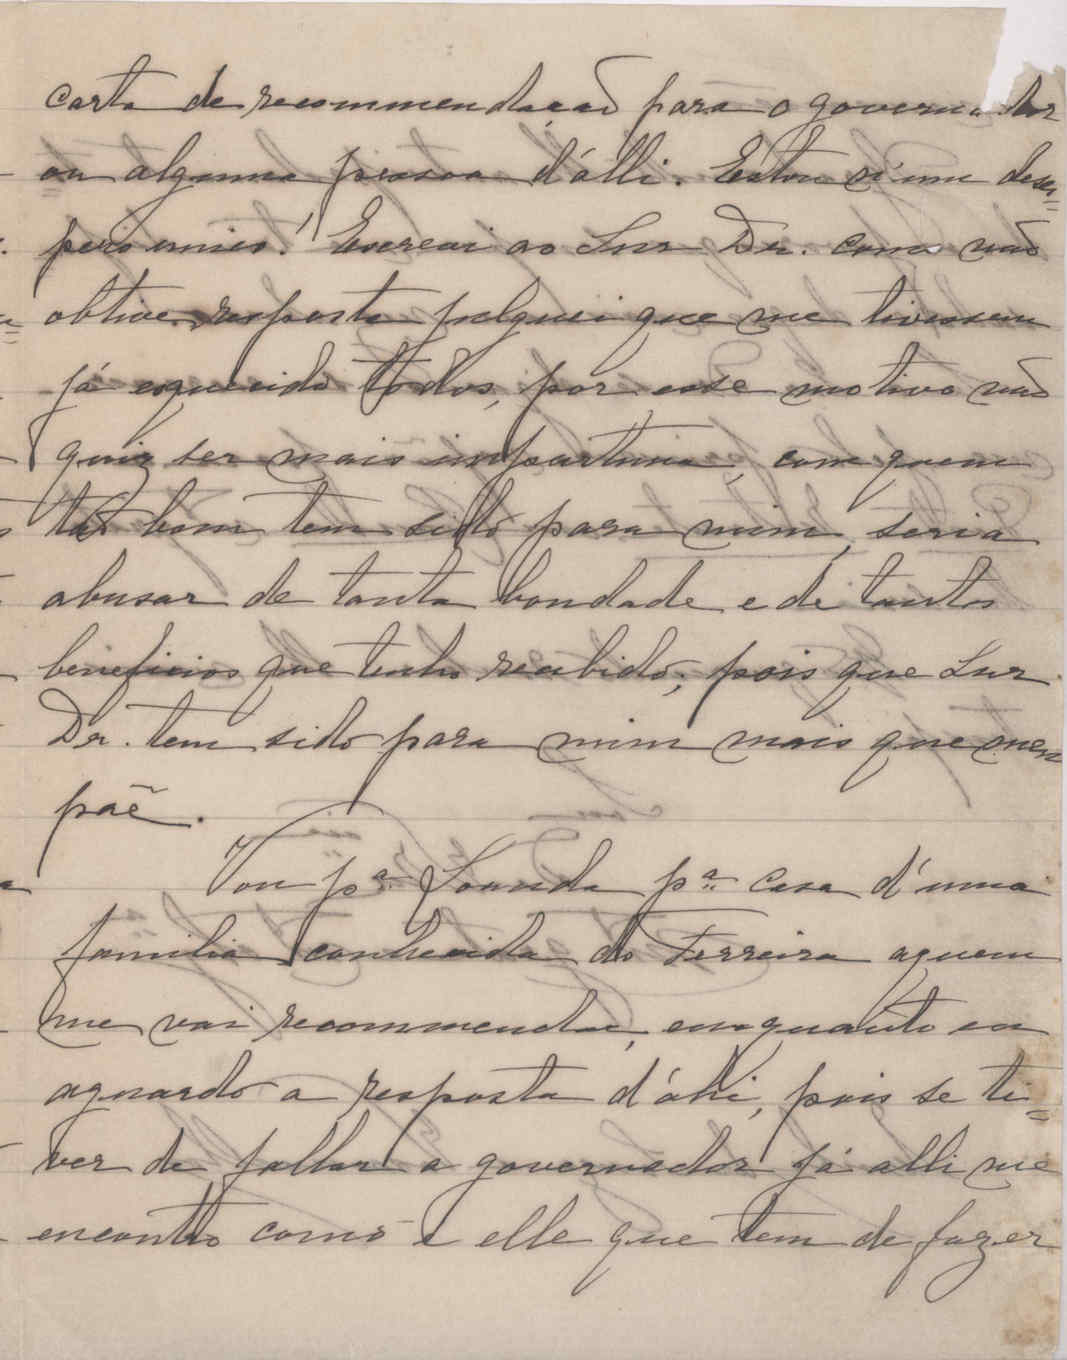 carta de recommendação para o governador
ou alguma pessoa d'alli. Estou n'um deses=
pero unico! Escrevi ao Snr Dr. como não
obtive resposta julguei que me tivessem
já esquecido todos, por esse motivo não
quiz ser mais importuna, com quem
tão bom tem sido para mim, seria
abusar de tanta bondade e de tantos
beneficios que tenho recebido, pois que Snr.
Dr. tem sido para mim mais que meu
pae.
Vou pª Loanda pª casa d'uma
familia conhecida do Ferreira aquem
me vai recommendar, emquanto eu
aguardo a resposta d'ahi, pois se ti=
ver de fallar a governador já alli me
encontro como é elle que tem de fazer